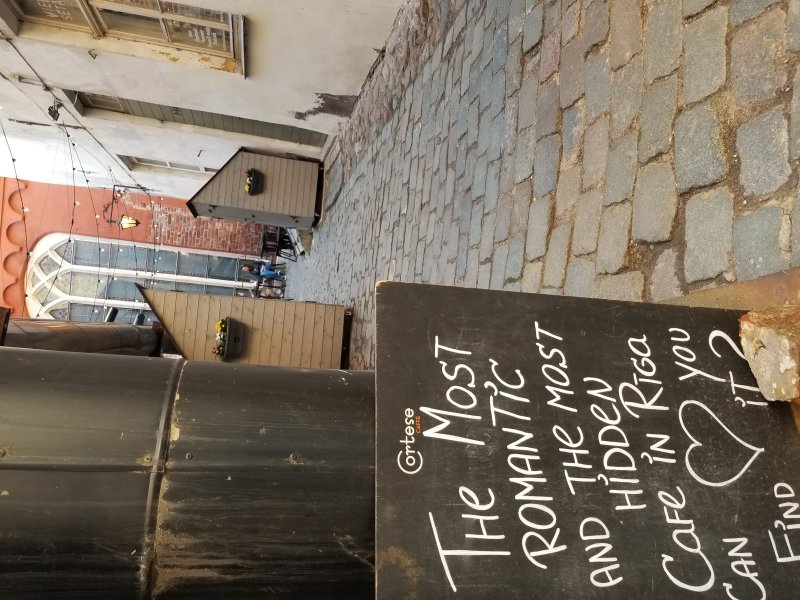 Cortese
CAFE
THE MOST
ROMANTIC
AND THE MOST
HIDDEN
CAFE IN RĪGA
CAN YOU
FIND IT?